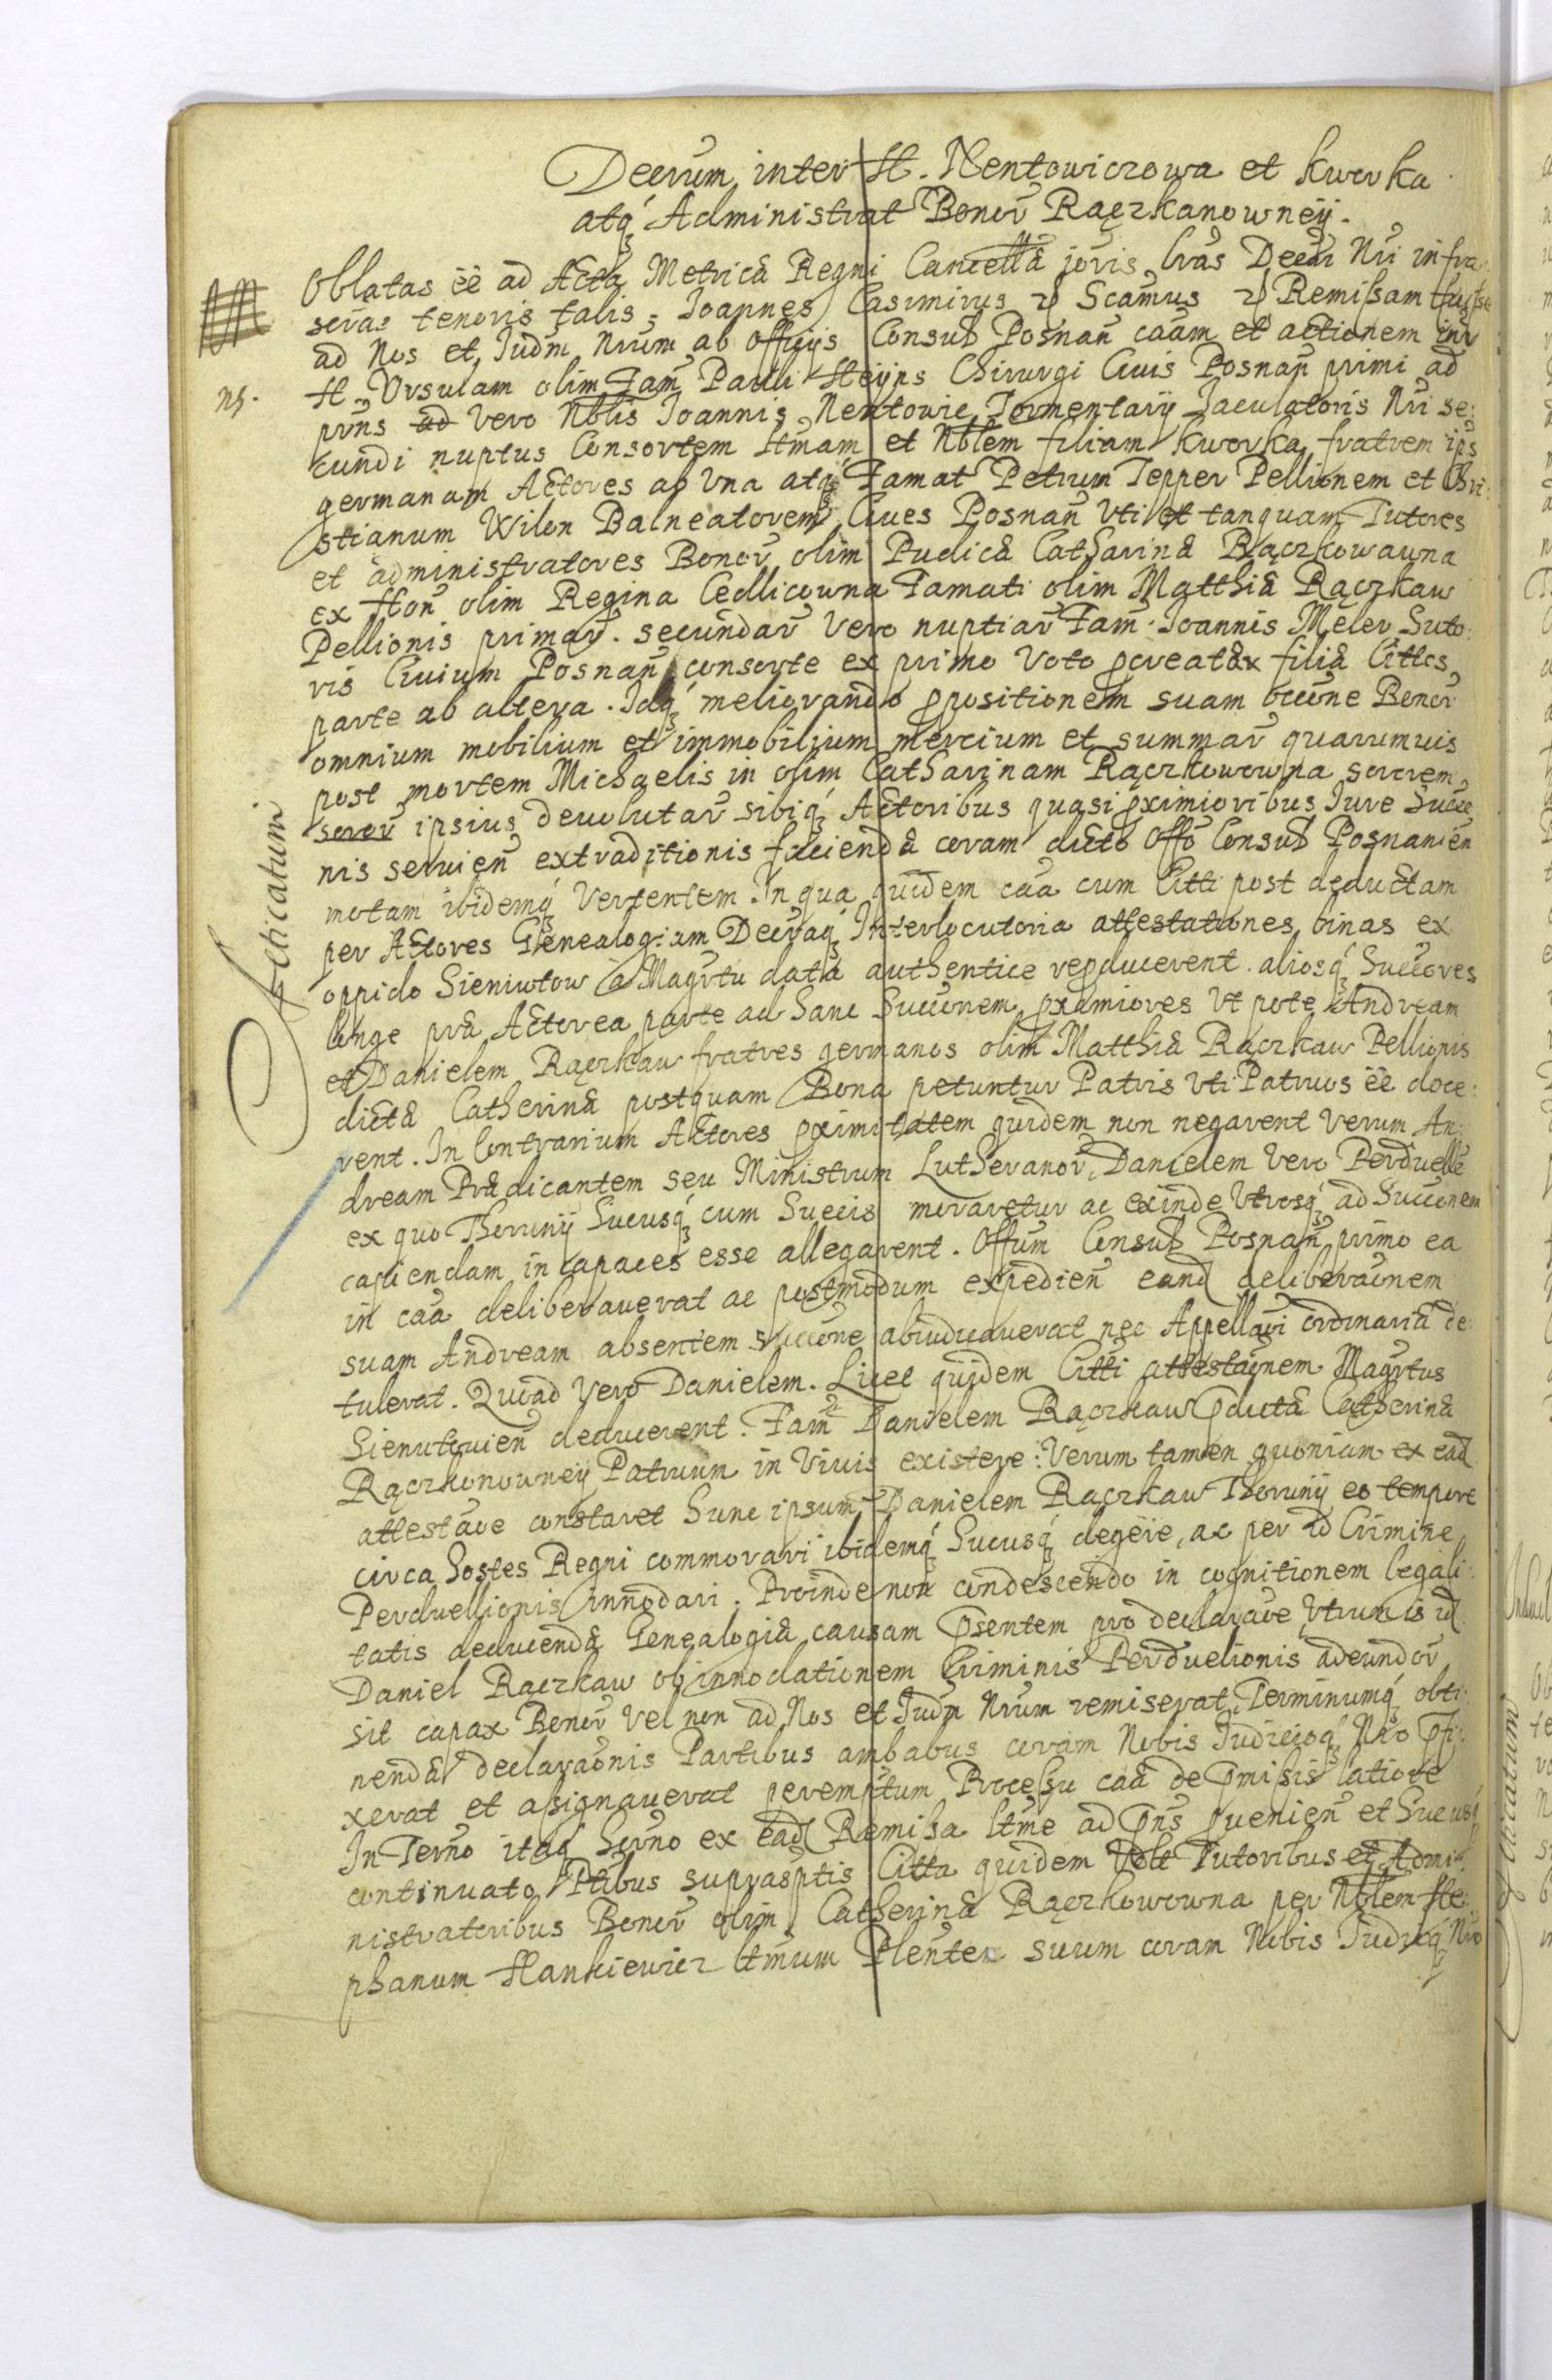 Decrum inter H. Nentowiczowa et Kworka
atq Administrat Bonor Rączkanowneÿ.
Oblatas ee ad Acta Metrica Regni Cancella joris lras Decri Nri infra
scras tenoris talis. Joannes Casimirus Scamus Remissam
ad Nos et Judm Nrum ab Offijs Consul Posnan caam et actionem intr
H. Vrsulam olim Fam Pauli Heijns Chirurgi Ciuis Posnan primi ad
ns.
prns ad vero Nblis Joannis Nentowic Tormentarÿ Jaculatoris Nri se
cundi nuptus Consortem ltmam et Nblem filiam Kworka fratrem ips
germanam Actores ab Vna atq Famat Petrum Tepper Pellionem et Chri
stianum Wilen Balneatorem Ciues Posnan vti et tanquam Tutores
et administratores Bonor olim Pudica Catharina Rączkowauna
ex Hon olim Regina Cedlicowna Famati olim Matthia Rączkaw
Pellionis primar. secundar vero nuptiar Fam Joannis Meler Suto
ris Ciuium Posnan consorte ex primo Voto pcreatæ filia Cittos
parte ab altera. Idq meliorando ppositionem suam occone Bonor
omnium mobilium et immobilium mercium et summar quarumuis
post mortem Michaelis in olim Catharinam Rączkowowna sororem
soror ipsius deuolutar sibiq Actoribus quasi pximioribus Jure Succe
nis seruien extraditionis facienda coram dicto Offo Consul Posnanien
motam ibidemq Vertentem. In qua quidem caa cum Citti post deductam
per Actores Genealogiam Decraq Interlocutoria attestationes binas ex
oppido Sieniutow a Magrtu data authentice repducerent. aliosq Succores
longe præ Actorea parte ad hanc Succonem pximiores vt pote Andream
et Danielem Rączkaw fratres germanos olim Matthia Rączkaw Pellionis
dicta Catherina postquam Bona petuntur Patris vti Patruos ee doce
rent. In Contrarium Actores pximitatem quidem non negarent verum An
dream Prædicantem seu Ministrum Lutheranor, Danielem vero Perduelle
ex quo Thorunij Sucusq cum Suecis moraretur ac exinde Vtrosq ad Succonem
capiendam incapaces esse allegarent. Offum Consul Posnan primo ea
in caa deliberauerat ac postmodum expedien eand deliberaonem
suam Andream absentem succone abiudicauerat nec Appellaoi ordinaria de
tulerat. Quoad Vero Danielem. Licet quidem Citti attestaonem Magrtus
Sienutouien deducerent. Fam Danielem Rączkaw pdicta Catherina
Rączkonowneÿ Patruum in Viuis existere. Verum tamen quoniam ex ead
attestaoe constaret hunc ipsum Danielem Rączkaw Thorunij eo tempore
circa hostes Regni commorari ibidemq hucusq degere, ac per id Crimine
Perduellionis innodari. Proinde non condescendo in cognitionem legali
tatis deducenda Genealogia causam psentem pro declaraoe, Vtrum is id
Daniel Rączkaw ob innodationem Criminis Perduelionis adeundor
sit capax Bonor Vel non ad Nos et Judm Nrum remiserat, Terminumq obti
nenda declaraonis Partibus ambabus coram Nobis Judicioq Nro pfi
xerat et assignauerat peremptum Processu caa de pmissis latiore
In Terno itaq herno ex ead Remissa ltme ad pns puenien et hucusq
continuato Ptibus suprasptis Citta quidem Tutoribus et Admi
nistratoribus Bonor olim Catherina Rączkowowna per Nblem Ste
phanum Hankiewicz ltmum Plenten suum coram Nobis Judioq Nro
Acticatum